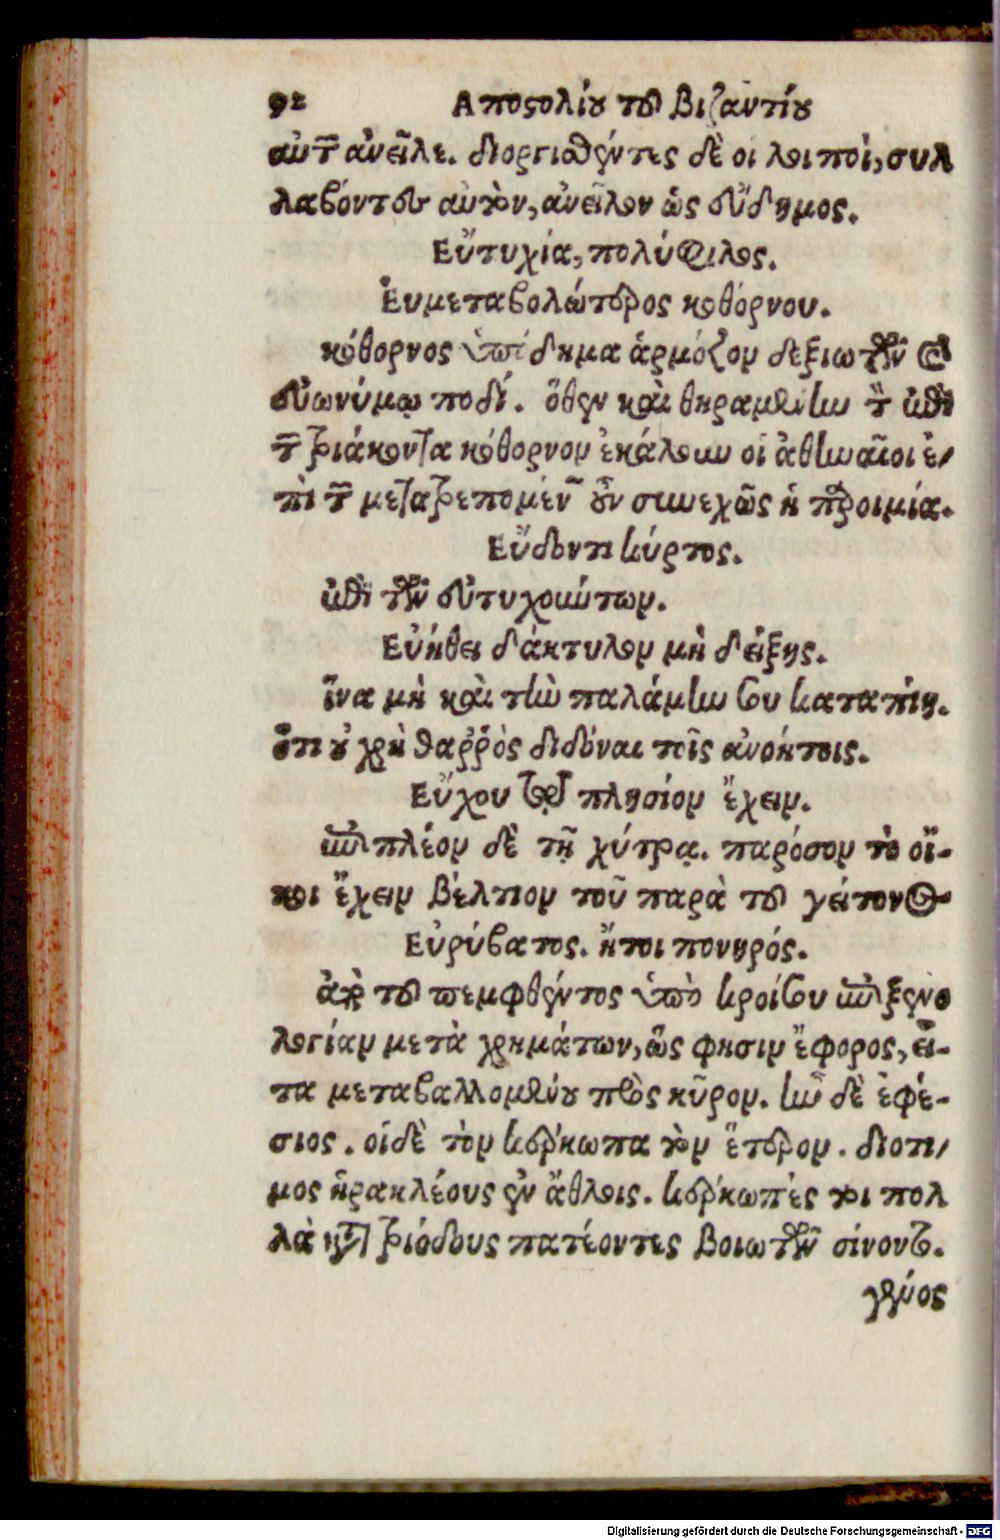 92 Αποστολίου τοῦ βιζαντίου
αὐτὸν ἀνεῖλε. διοργισθέντες δὲ οἱ λοιποὶ, συλ
λαβόντες αὐτὸν, ἀνεῖλον ὡς εὔδημος.
Εὐτυχία, πολύφιλος.
Ἐυμεταβολώτερος κοθόρνου.
κόθορνος ὑπόδημα ἁρμόζον δεξιῷ τῶν καὶ
εὐωνύμῳ ποδί. ὅθεν καὶ θηραμένην τὸν ἐπὶ
τῶν τριάκοντα κόθορνον ἐκάλουν οἱ ἀθηναῖοι ἐ-
πὶ τῶν μετατρεπομένων οὖν συνεχῶς ἡ παροιμία.
Εὕδοντι κύρτος.
ἐπὶ τῶν εὐτυχούντων.
Εὐήθει δάκτυλον μὴ δείξῃς.
ἵνα μὴ καὶ τὴν παλάμην σου καταπίῃ.
ὅτι οὐ χρὴ θάρρος διδόναι τοῖς ἀνοήτοις.
Εὔχου τὸν πλησίον ἔχειν.
πλέον δὲ τῇ χύτρᾳ. παρόσον τὸ οἴ-
κοι ἔχειν βέλτιον τοῦ παρὰ τοῦ γείτονος
Εὐρύβατος. ἤτοι πονηρός.
ἀπὸ τοῦ πεμφθέντος ὑπὸ κροίσου ἐπὶ ξενο
λογίαν μετὰ χρημάτων, ὥς φησιν ἔφορος, εἶ-
τα μεταβαλλομένου πρὸς κῦρον. ἦν δὲ ἐφέ-
σιος. οἱ δὲ τὸν κερκωπα τὸν ἕτερον. διοτι-
μος ἡρακλέους ἐν ἄθλοις. κερκωπές τοι πολ
λὰ κατὰ τριόδους πατέοντες βοιωτῶν σίνοντο.
γένος
Digitalisierung gefördert durch die Deutsche Forschungsgemeinschaft - DFG